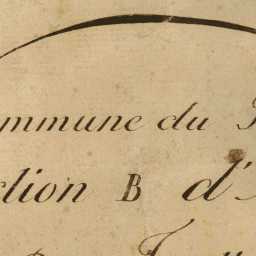 ommune du
ction B d'